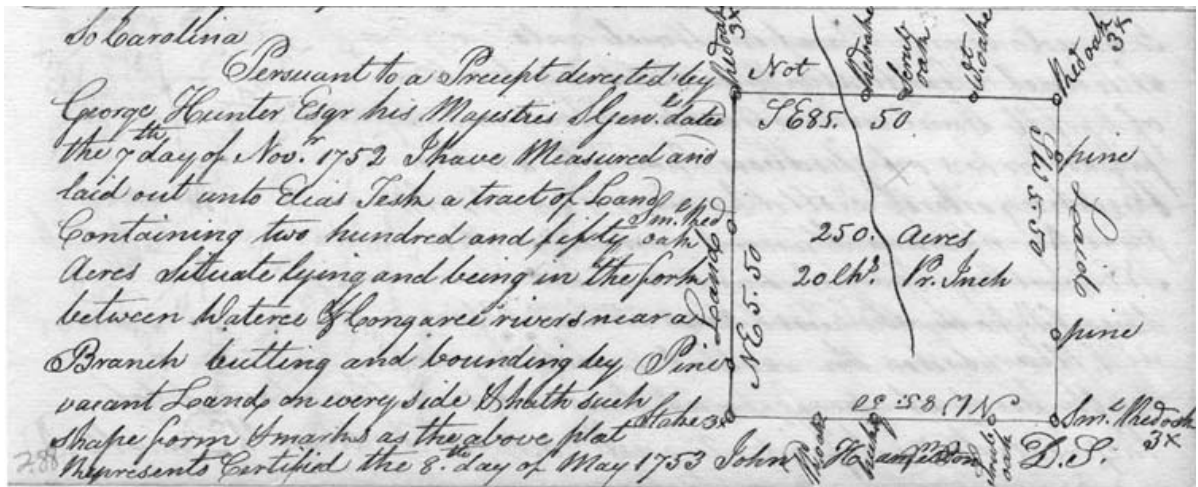 So Carolina
Persuant to a Precept derected by
George Hunter Esqr his Majesties S Genl. dated
the 7th day of Novr. 1752 I have Measured and
laid out unto Elias Tesh a tract of Land
Containing two hundred and fifty
Acres Situate lying and being in the fork
between Wateree & Congaree rivers near a
Branch butting and bounding by
vacant Land on every side & hath such
shape form & marks as the above plat
Represents Certified the 8th. day of May 1753 John Hamelton D. S.
Red oak 3x
Not
Red oake
Scrub oak
Wr. Oake
Red oak 3x
SE 85. 50
SW 5:50
pine
Land
Sml. Red oak
250. Acres
20 Chs. Pr. Inch
Land
NE 5.50
Pine
pine
Stake 3x
NW 85:50
Sml. Red oak 3x
Roak
hickry
Scrub oak
288